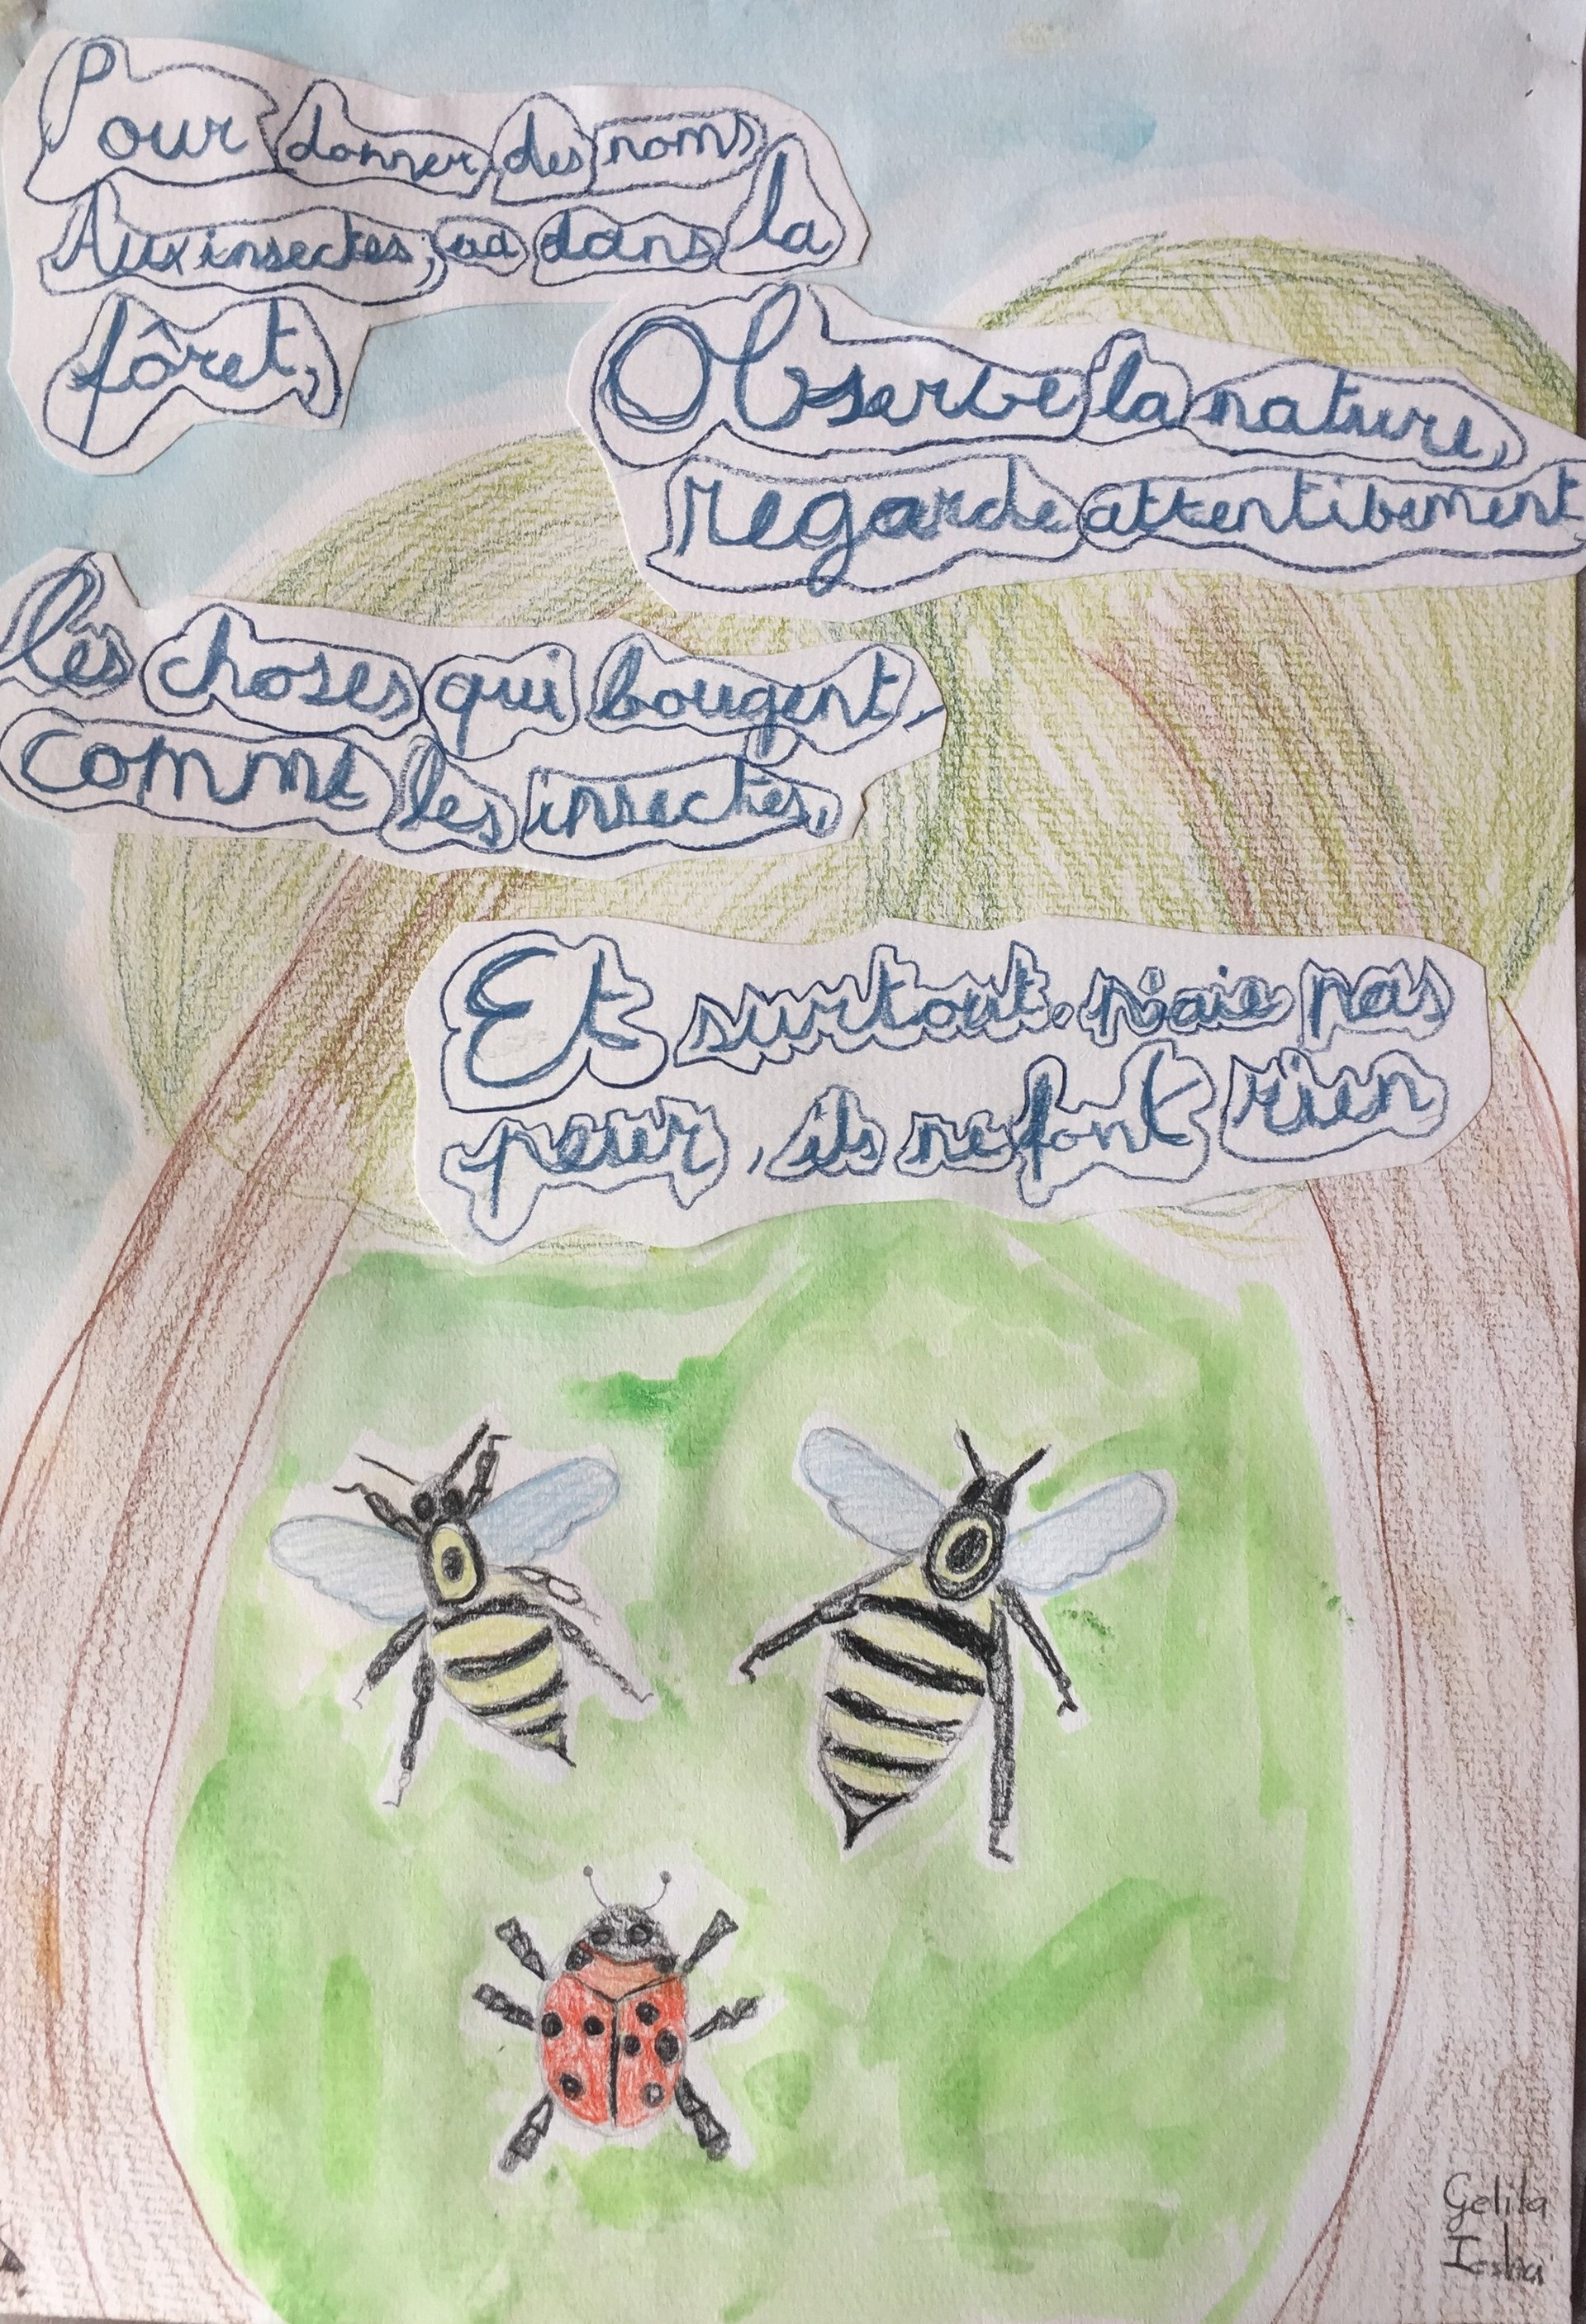 Pour donner des noms
Aux insectes, va dans la
fôret,
Observe la nature,
regarde attentivement
les choses qui bougent,
comme les insectes,
Et surtout n'aie pas
peur, ils ne font rien
Gelila